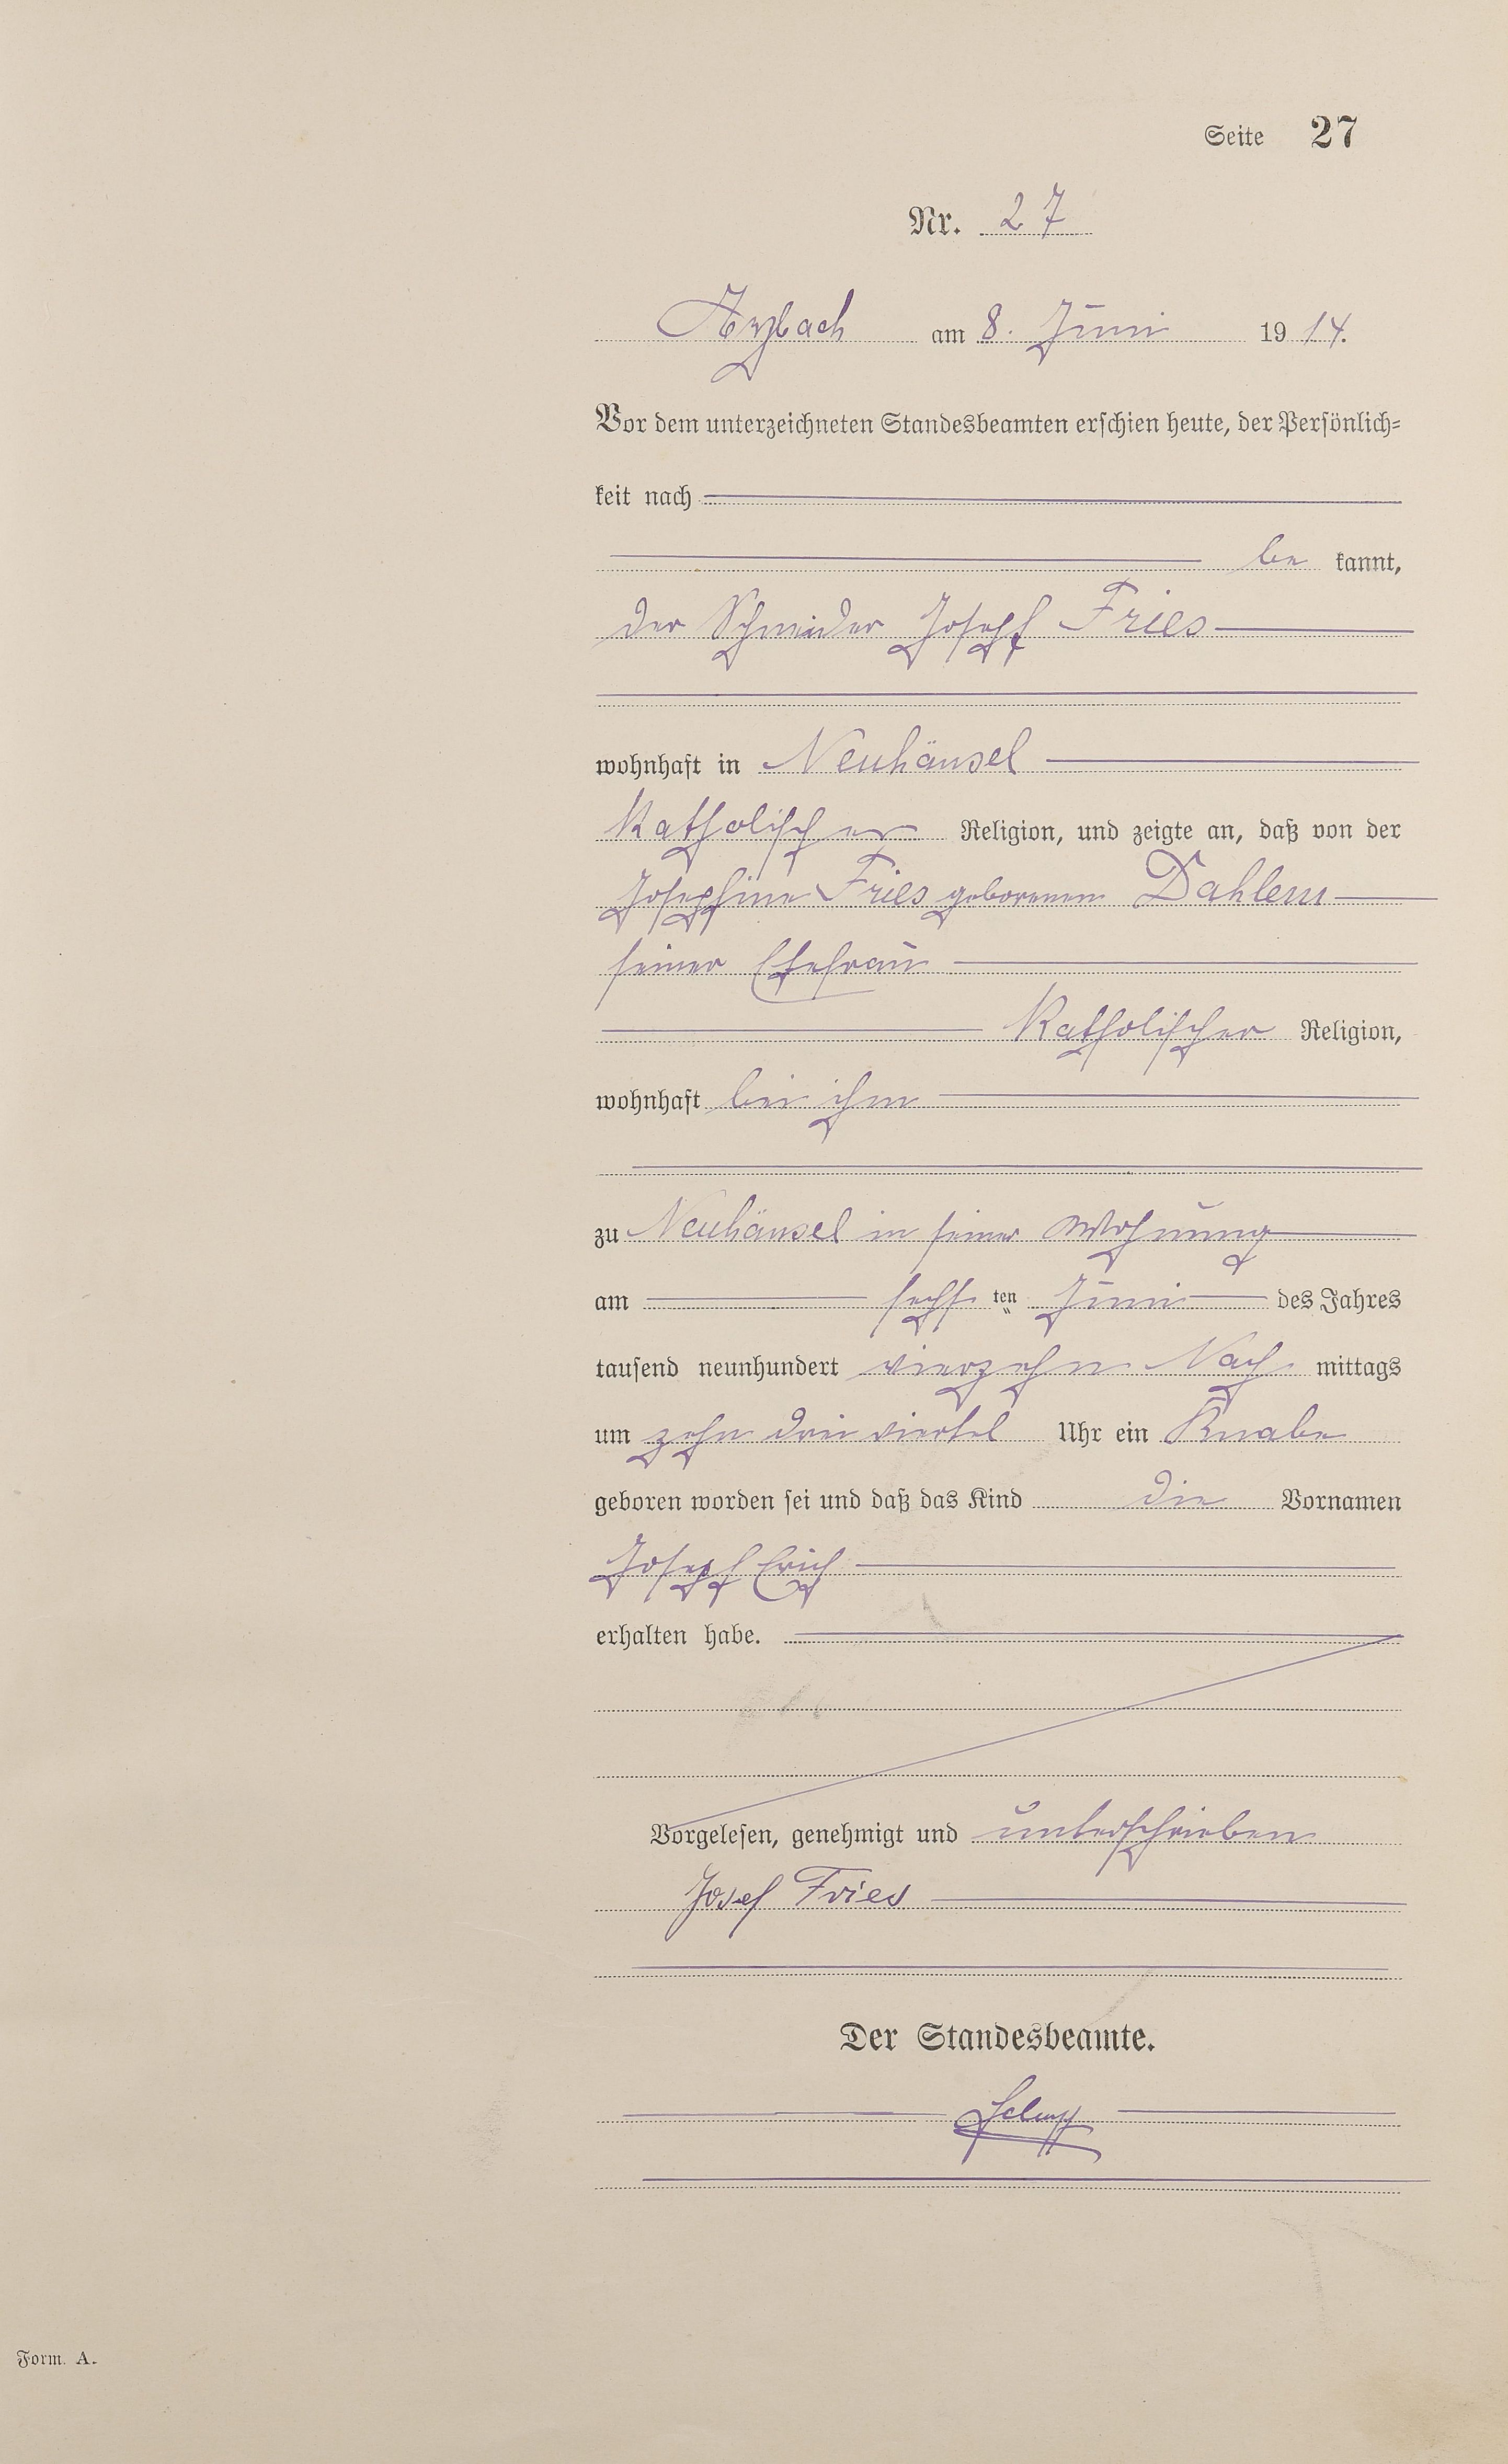 Seite 27
Nr. 27
Arzbach am 8. Juni 1914.
Vor dem unterzeichneten Standesbeamten erschien heute, der Persönlich-
keit nach
be kannt,
der Schneider Joseph Fries
wohnhaft in Neuhäusel
katholischer Religion, und zeigte an, daß von der
Josephine Fries geborenen Dahlem
seiner Ehefrau
katholischer Religion,
wohnhaft bei ihm
zu Neuhäusel in seiner Wohnung
am sechsten Juni des Jahres
tausend neunhundert vierzehn Nach mittags
um zehn drei viertel Uhr ein Knabe
geboren worden sei und daß das Kind die Vornamen
Joseph Erich
erhalten habe.
Vorgelesen, genehmigt und unterschrieben
Josef Fries
Der Standesbeamte.
Form. A.